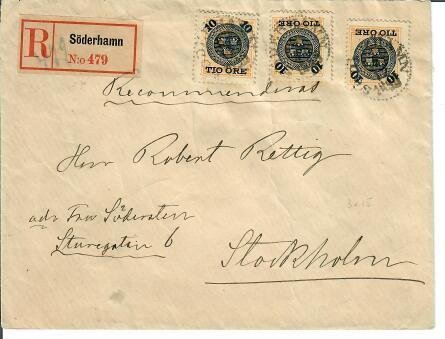 R
Söderhamn
N:o 479
10 10
TIO ÖRE
TIO ÖRE
10 10
TIO ÖRE
10 10
Recommenderas
Herr Robert Rettig
adr Fru Södersten
Sturegatan 6
Stockholm